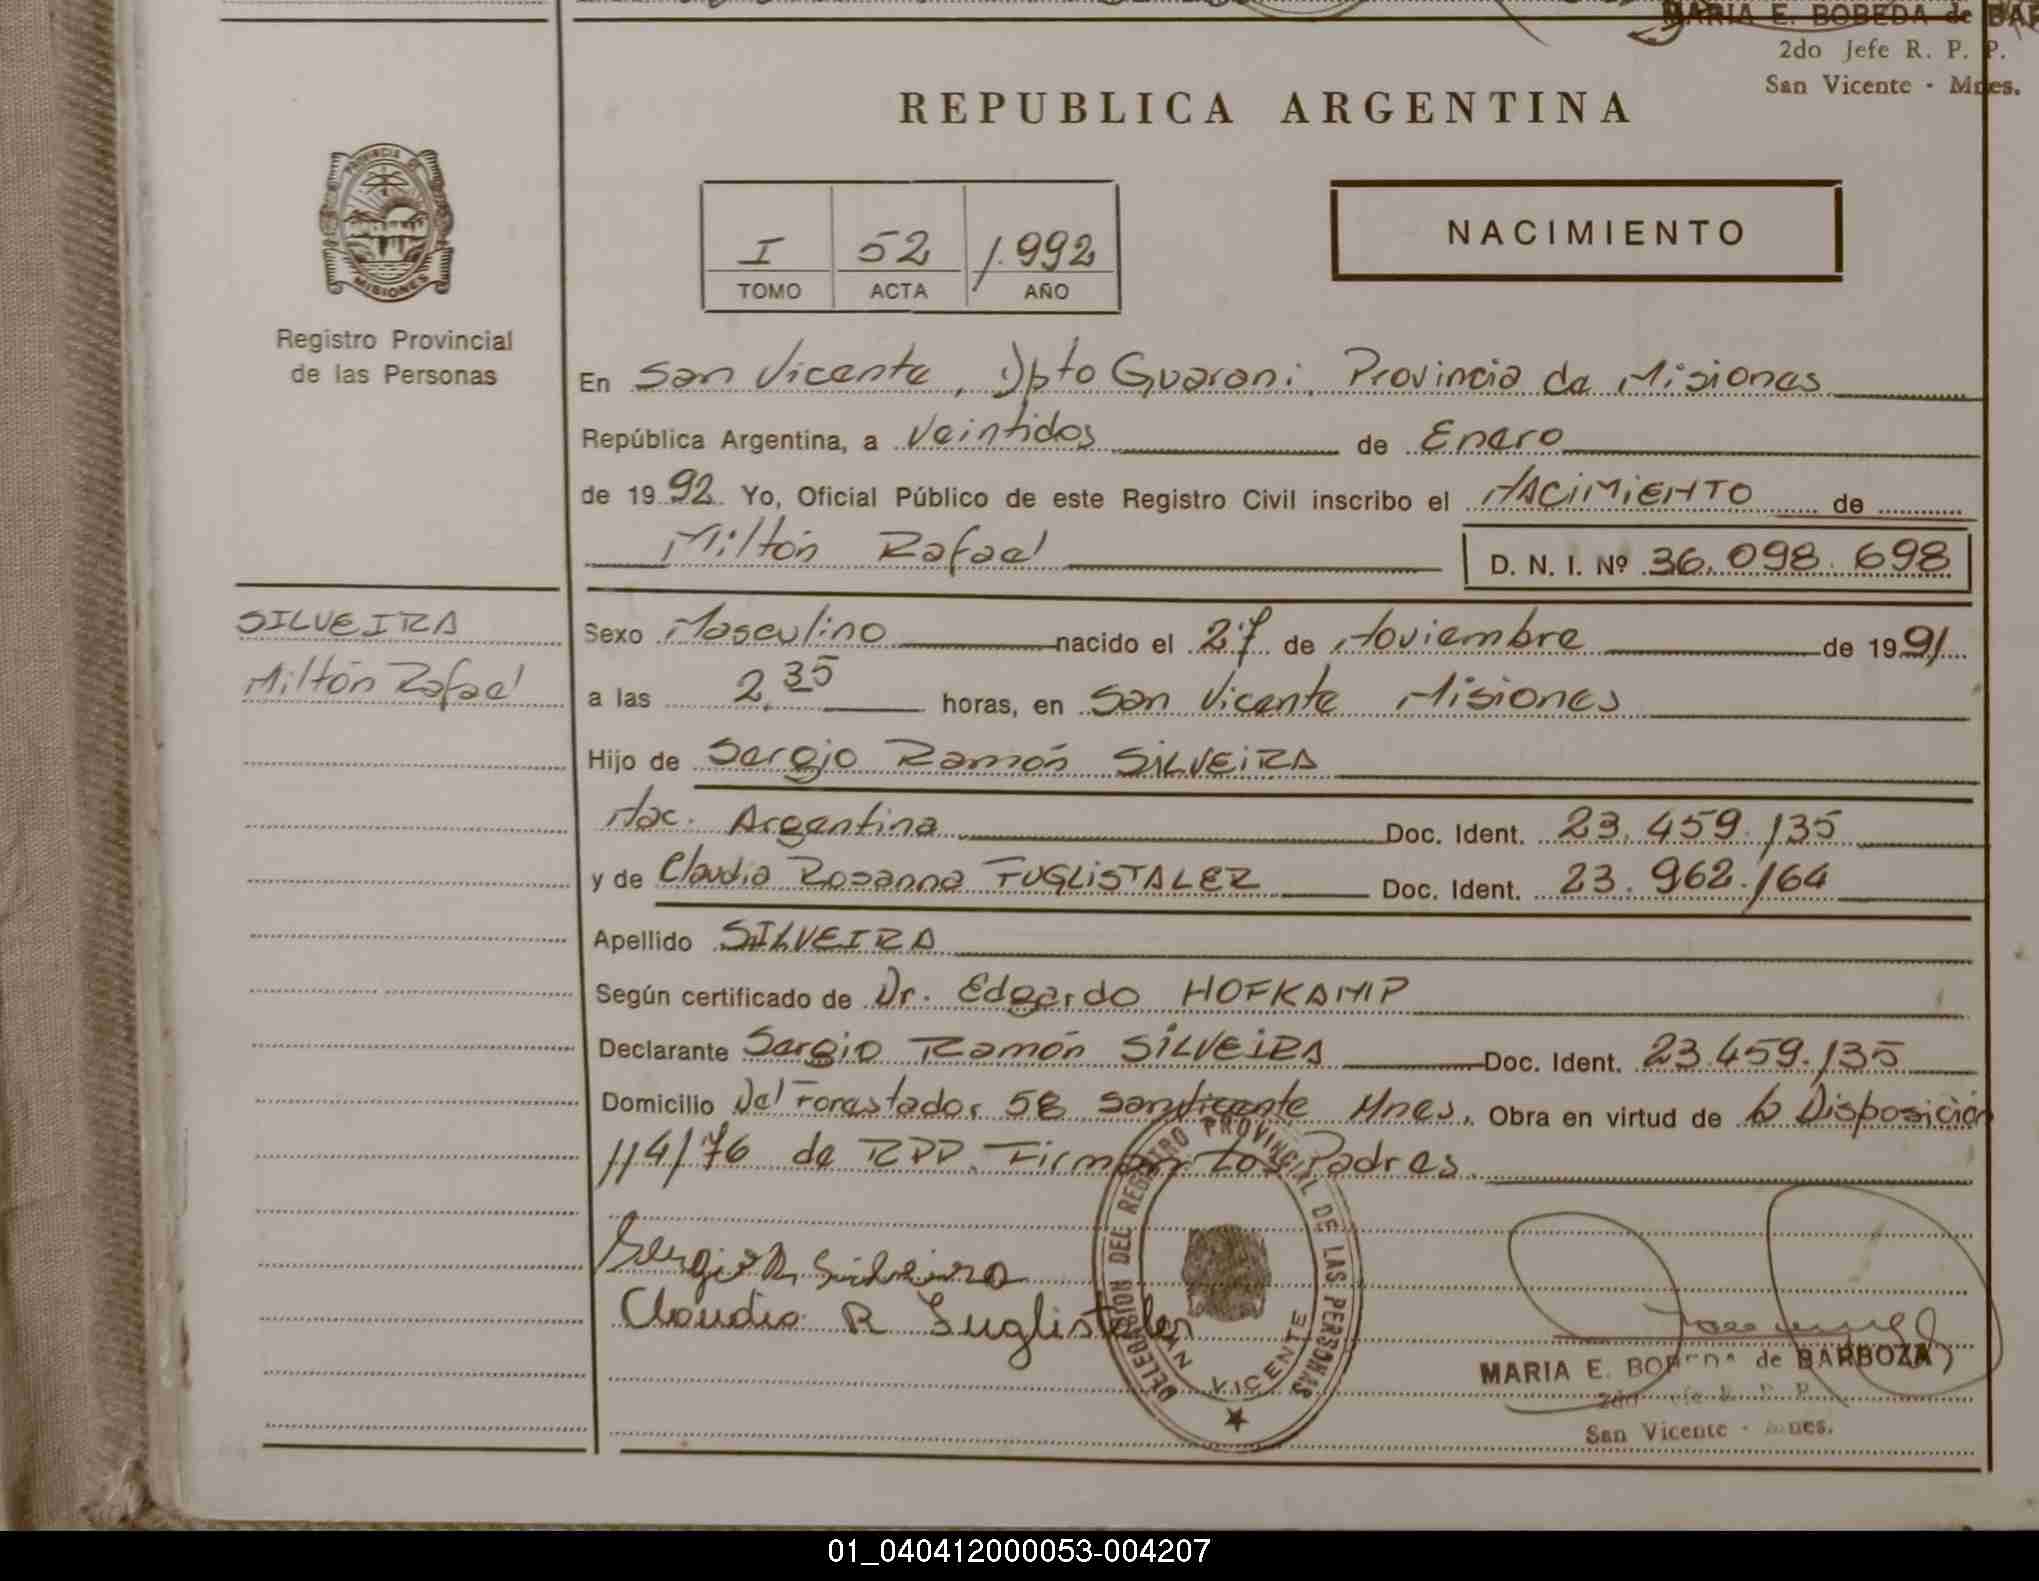 MARIA E. BOBEDA de BAR
2do Jefe R. P. P.
San Vicente - Mnes.
REPUBLICA ARGENTINA
PROVINCIA DE
MISIONES
Registro Provincial
de las Personas
I 52 1.992
TOMO ACTA AÑO
NACIMIENTO
En San Vicente, Dpto Guarani Provincia de Misiones
República Argentina, a Veintidos de Enero
de 1992 Yo, Oficial Público de este Registro Civil inscribo el NACIMIENTO de
Miltón Rafael D. N. I. Nº 36.098.698
SILVEIRA
Miltón Rafael
Sexo Masculino nacido el 27 de Noviembre de 1991
a las 2,35 horas, en San Vicente Misiones
Hijo de Sergio Ramón SILVEIRA
Nac. Argentina Doc. Ident. 23.459.135
y de Claudia Rosanna FUGLISTALER Doc. Ident. 23.962.164
Apellido SILVEIRA
Según certificado de Dr. Edgardo HOFKAMP
Declarante Sergio Ramón SILVEIRA Doc. Ident. 23.459.135
Domicilio Del Forestador 58 San Vicente Mnes. Obra en virtud de la Disposición
114/76 de RPP. Firman Los Padres.
Sergio R. Silveira
Claudia R Fuglistaler
DELEGACION DEL REGISTRO PROVINCIAL DE LAS PERSONAS
SAN VICENTE
MARIA E. BOBEDA de BARBOZA
2do Jefe R. P. P.
San Vicente - Mnes.
01_040412000053-004207